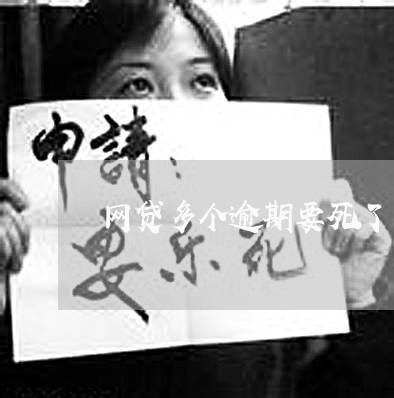 申請：
网贷多个逾期要死了
安乐死